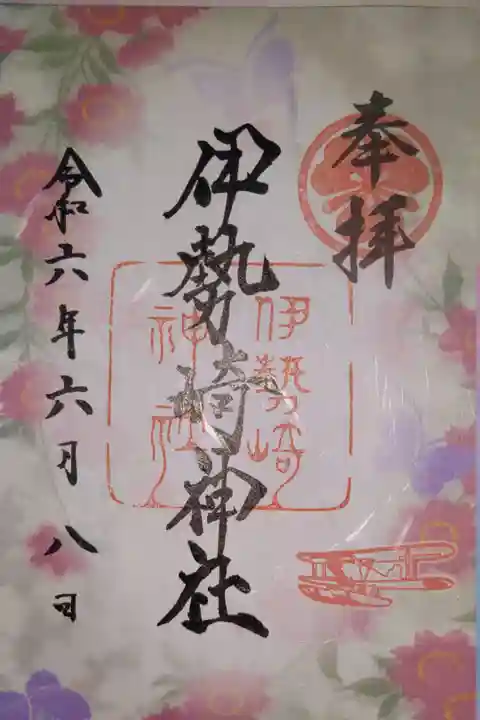 奉拝
伊勢崎神社
伊勢崎
神社
令和六年六月八日